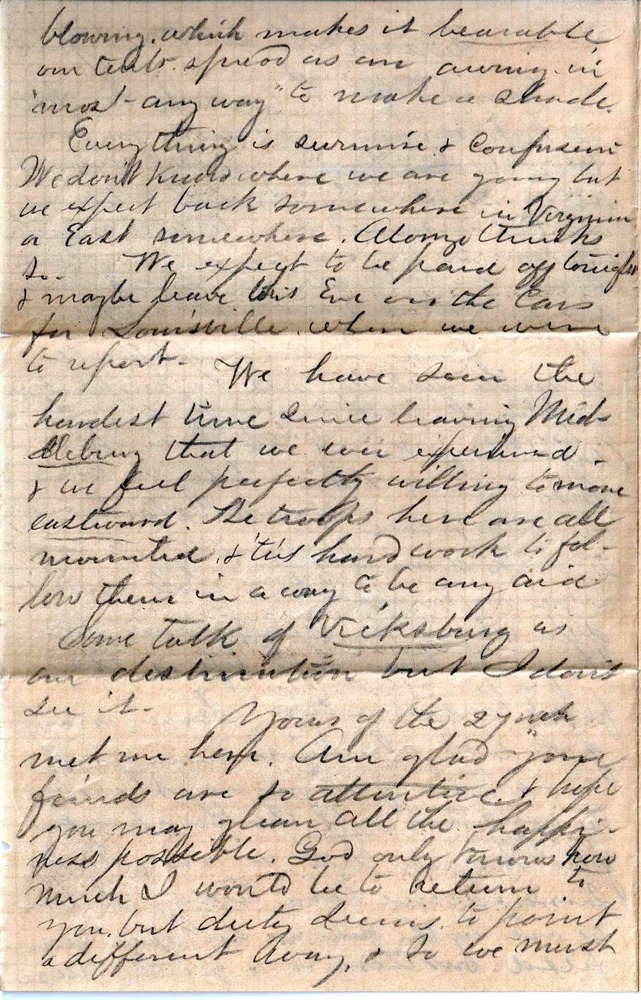 blowing, which makes it bearable
our tents spread as an awning in
"most any way" to make a shade.
Everything is surmise & confusion
We don't know where we are going but
we expect back somewhere in Virginia
or East somewhere. Alonzo thinks
so. We expect to be paid off tonight
& maybe leave this Eve on the Cars
for Louisville where we were
to report. We have seen the
hardest time since leaving Mid-
dleburg that we ever experienced
& we feel perfectly willing to move
eastward. The troops here are all
mounted, & tis hard work to fol-
low them in a way to be any aid
Some talk of Vicksburg as
our destination but I don't
see it. Yours of the 27
met me here. Am glad your
friends are so attentive & hope
you may glean all the happi-
ness possible. God only knows how
much I would be to return to
you, but duty seems to point
a different away, & so we must